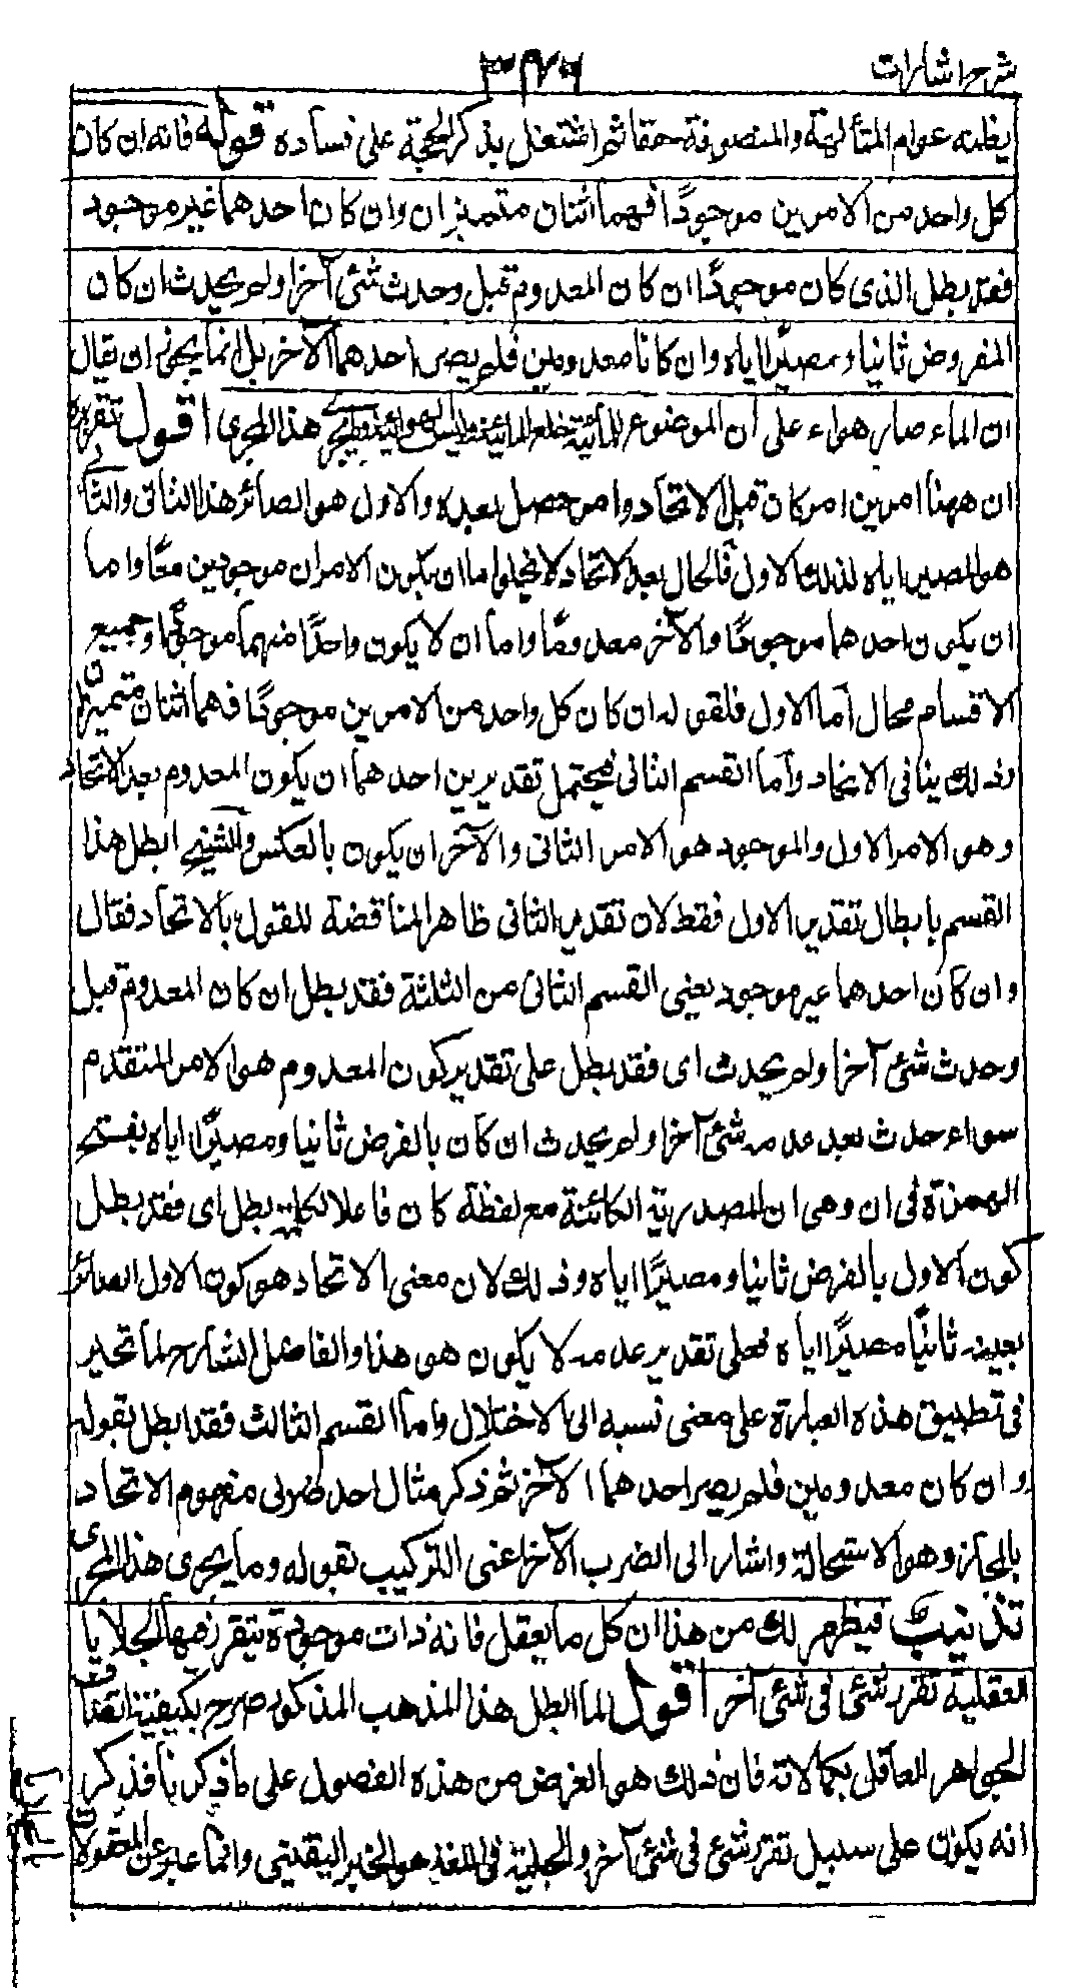 شرح اشارات
٣٧٦
يظنه عوام المتألهة والمتصوفة حقا ثم اشتغل بذكر الحجة على فساده قوله فانه ان كان
كل واحد من الامرين موجودًا فهما اثنان متميزان وان كان احدهما غير موجود
فقد بطل الذى كان موجودًا ان كان المعدوم قبل وحدث شئ آخر او لم يحدث ان كان
المفروض ثانيا ومصيرًا اياه وان كانا معدومين فلم يصر احدهما الآخر بل انما يجوز ان يقال
ان الماء صار هواء على ان الموضوع للمائية خلع المائية ولبس الهوائية وما يجرى هذا المجرى اقول تقريره
ان ههنا امرين امر كان قبل الاتحاد وامر حصل بعده والاول هو الصائر هذا الثانى والثانى
هو المصير اياه لذلك الاول فالحال بعد الاتحاد لا يخلو اما ان يكون الامران موجودين معًا واما
ان يكون احدهما موجودًا والآخر معدومًا واما ان لا يكون واحدًا منهما موجودًا وجميع
الاقسام محال اما الاول فلقوله ان كان كل واحد من الامرين موجودًا فهما اثنان متميزان
وذلك ينافى الاتحاد واما القسم الثانى فيحتمل تقديرين احدهما ان يكون المعدوم بعد الاتحاد
وهو الامر الاول والموجود هو الامر الثانى والآخر ان يكون بالعكس والشيخ ابطل هذا
القسم بابطال تقدير الاول فقط لان تقدير الثانى ظاهر المناقضة للقول بالاتحاد فقال
وان كان احدهما غير موجود يعنى القسم الثانى من الثلثة فقد بطل ان كان المعدوم قبل
وحدث شئ آخر او لم يحدث اى فقد بطل على تقدير كون المعدوم هو الامر المتقدم
سواء حدث بعد عدمه شئ آخر او لم يحدث ان كان بالفرض ثانيا ومصيرًا اياه بفتح
الهمزة فى ان وهى ان المصدرية الكائنة مع لفظة كان فاعلا لكلمة بطل اى فقد بطل
كون الاول بالفرض ثانيا ومصيرًا اياه وذلك لان معنى الاتحاد هو كون الاول الصائر
بعينه ثانيًا مصيرًا اياه فعلى تقدير عدمه لا يكون هو هذا والفاضل الشارح لما تحير
فى تطبيق هذه العبارة على معنى نسبه الى الاختلال واما القسم الثالث فقد ابطل بقوله
وان كان معدومين فلم يصر احدهما الآخر ثم ذكر مثال احد ضربى مفهوم الاتحاد
بالمجاز وهو الاستحالة واشار الى الضرب الآخر اعنى التركيب بقوله وما يجرى هذا المجرى
تذنيب فيظهر لك من هذا ان كل ما يعقل فانه ذات موجودة يتقرر فيها الجلايا
العقلية تقرر شئ فى شئ آخر اقول لما ابطل هذا المذهب المذكور صرح بكيفية اتصاف
الجواهر العاقل بكمالاته فان ذلك هو الغرض من هذه الفصول على ما ذكرنا فذكر
انه يكون على سبيل تقرر شئ فى شئ آخر والجلية فى اللغة هو الخبر اليقينى وانما عبر عن المعقولات